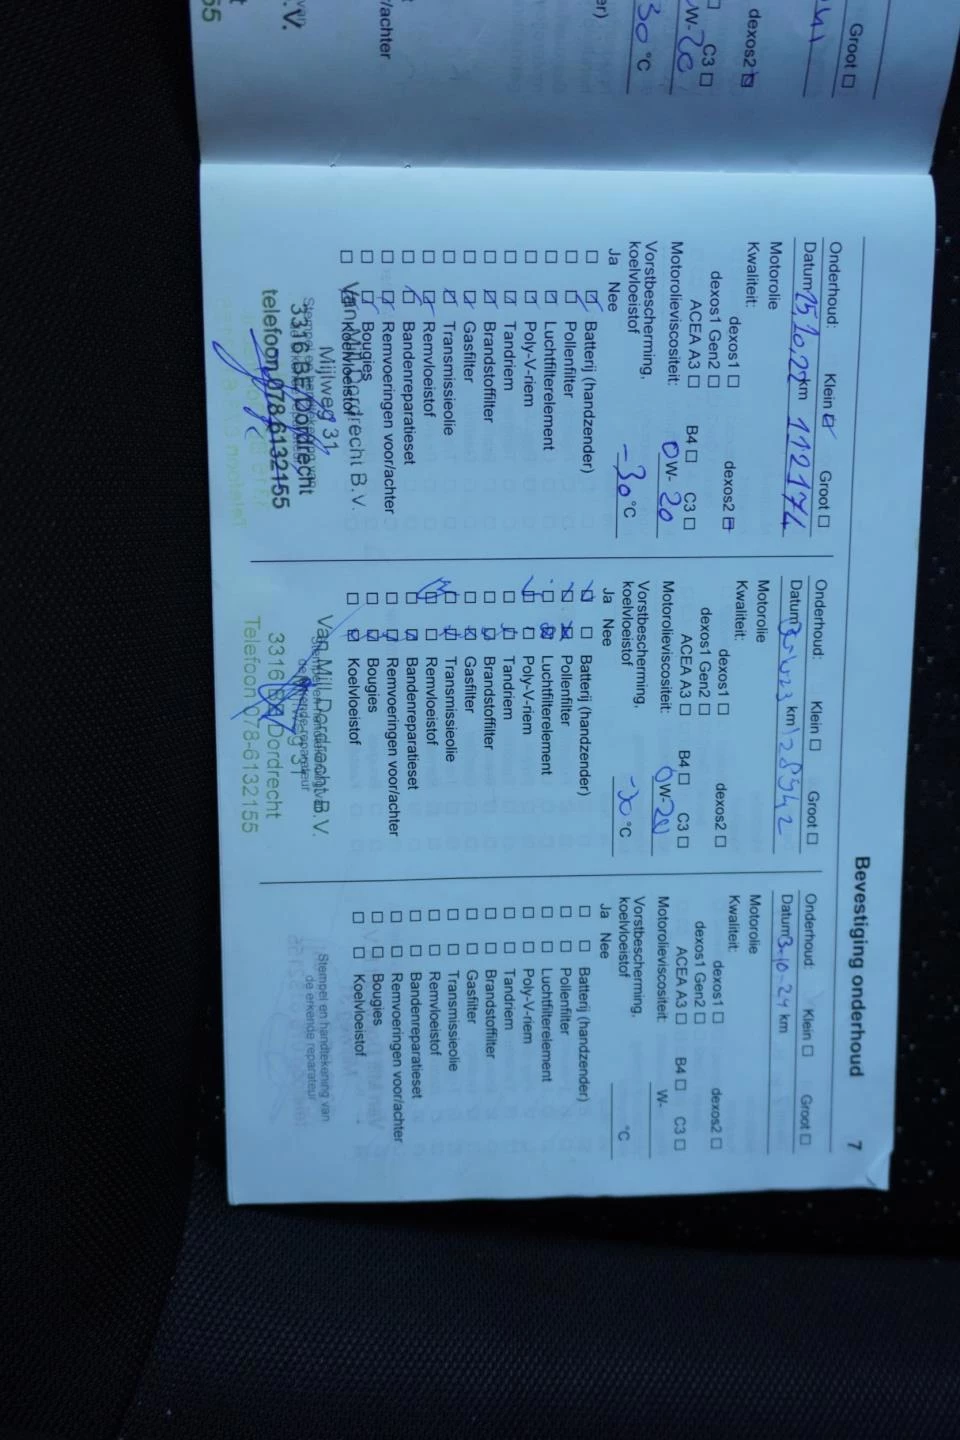 Groot
dexos2
C3
W-20
30 °C
/achter
Bevestiging onderhoud 7
Onderhoud: Klein Groot
Datum 25.10.22 km 112174
Motorolie
Kwaliteit: dexos1 dexos2
dexos1 Gen2
ACEA A3 B4 C3
Motorolieviscositeit: 0W-20
Vorstbescherming,
koelvloeistof -30 °C
Ja Nee
Batterij (handzender)
Pollenfilter
Luchtfilterelement
Poly-V-riem
Tandriem
Brandstoffilter
Gasfilter
Transmissieolie
Remvloeistof
Bandenreparatieset
Remvoeringen voor/achter
Bougies
Koelvloeistof
Van Mill Dordrecht B.V.
Mijlweg 31
3316 BE Dordrecht
telefoon 078-6132155
Onderhoud: Klein Groot
Datum km 128942
Motorolie
Kwaliteit: dexos1 dexos2
dexos1 Gen2
ACEA A3 B4 C3
Motorolieviscositeit: 0W-20
Vorstbescherming,
koelvloeistof -30 °C
Ja Nee
Batterij (handzender)
Pollenfilter
Luchtfilterelement
Poly-V-riem
Tandriem
Brandstoffilter
Gasfilter
Transmissieolie
Remvloeistof
Bandenreparatieset
Remvoeringen voor/achter
Bougies
Koelvloeistof
Van Mill Dordrecht B.V.
Mijlweg 31
3316 BE Dordrecht
Telefoon 078-6132155
Onderhoud: Klein Groot
Datum 3-10-24 km
Motorolie
Kwaliteit: dexos1 dexos2
dexos1 Gen2
ACEA A3 B4 C3
Motorolieviscositeit: W-
Vorstbescherming,
koelvloeistof °C
Ja Nee
Batterij (handzender)
Pollenfilter
Luchtfilterelement
Poly-V-riem
Tandriem
Brandstoffilter
Gasfilter
Transmissieolie
Remvloeistof
Bandenreparatieset
Remvoeringen voor/achter
Bougies
Koelvloeistof
Stempel en handtekening van
de erkende reparateur